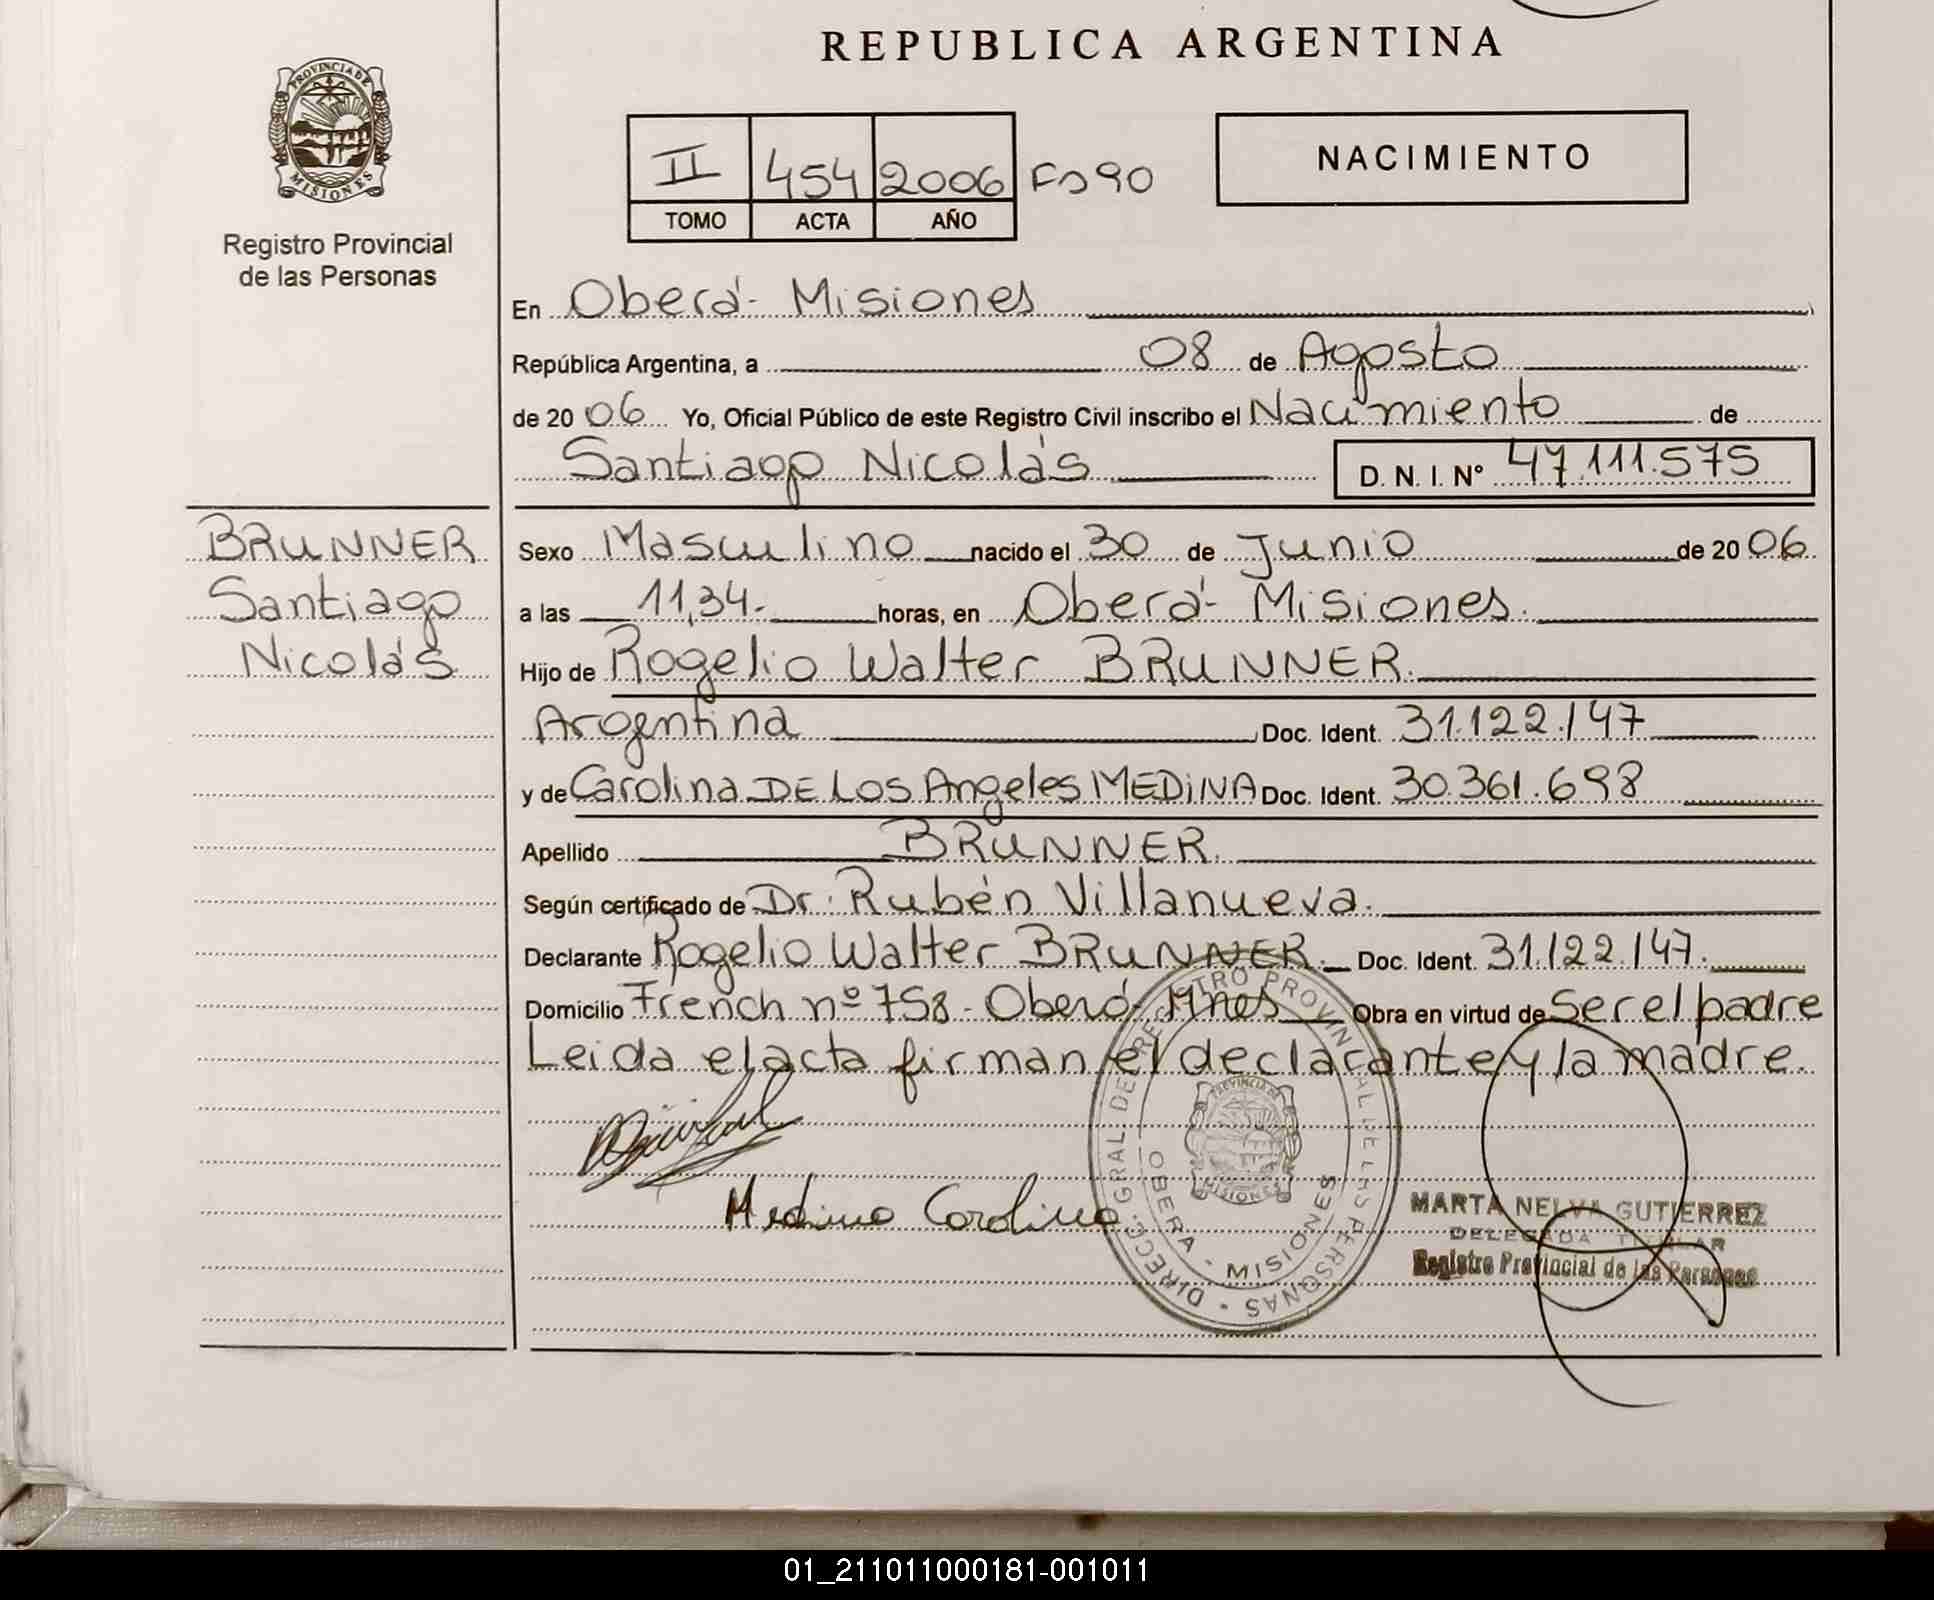 REPUBLICA ARGENTINA
PROVINCIA DE
MISIONES
Registro Provincial
de las Personas
II 454 2006 Fo 90
TOMO ACTA AÑO
NACIMIENTO
En Oberá - Misiones
República Argentina, a 08 de Agosto
de 20 06 Yo, Oficial Público de este Registro Civil inscribo el Nacimiento de
Santiago Nicolás D. N. I. Nº 47.111.575
BRUNNER
Santiago
Nicolás
Sexo Masculino nacido el 30 de Junio de 20 06
a las 11,34.- horas, en Oberá - Misiones.
Hijo de Rogelio Walter BRUNNER.
Argentina Doc. Ident. 31.122.147
y de Carolina DE LOS Angeles MEDINA Doc. Ident. 30.361.698
Apellido BRUNNER.
Según certificado de Dr. Rubén Villanueva.
Declarante Rogelio Walter BRUNNER. Doc. Ident. 31.122.147.
Domicilio French nº 758 - Oberá - Mnes Obra en virtud de Ser el padre
Leida el acta firman el declarante y la madre.
Medina Carolina
DIRECC. GRAL. DE REGISTRO PROVINCIAL DE LAS PERSONAS
PROVINCIA DE
MISIONES
OBERA - MISIONES
MARTA NELVA GUTIERREZ
DELEGADA TITULAR
Registro Provincial de las Personas
01_211011000181-001011